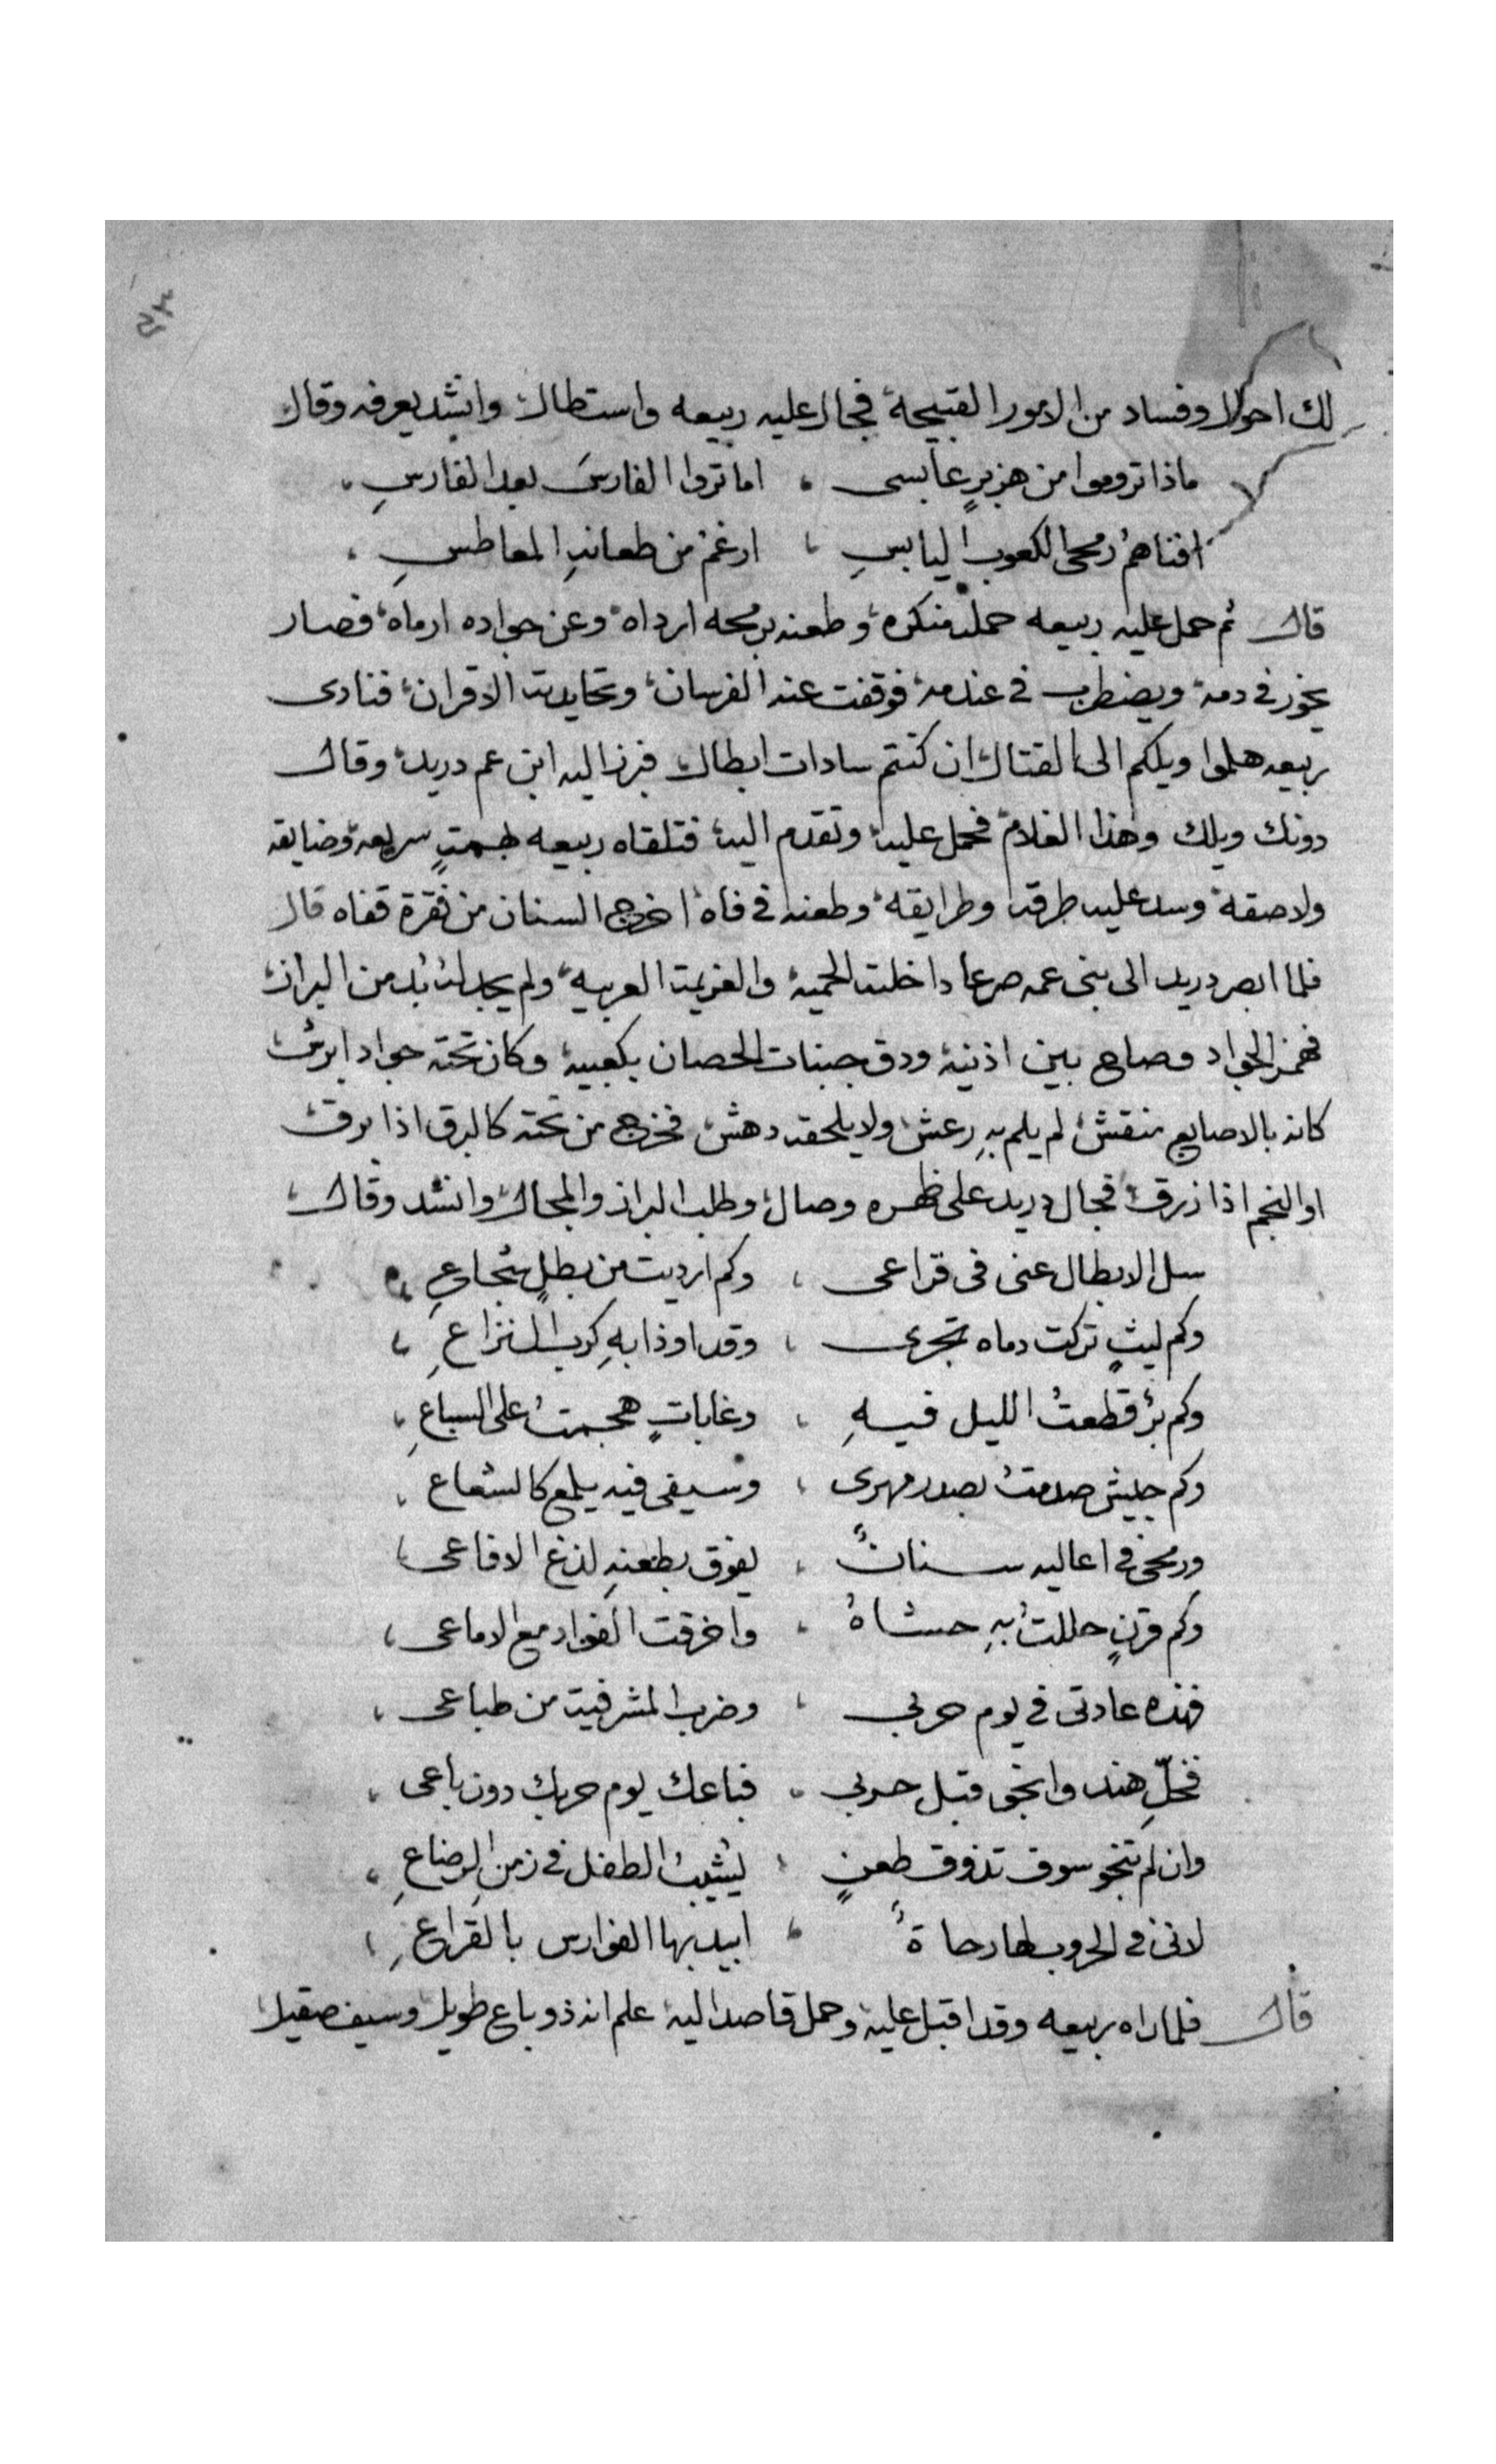 لك احوال وفساد من الامور القبيحة فجال عليه ربيعه واستطال وانشد يعرفه وقال
ماذا تروموا من هزبرٍ عابسى ، اما تروا الفارسَ بعد الفارسِ ،
افناهمُ رمحى الكعوب اليابسِ ، ارغم من طعانهِ المعاطسِ ،
قال ثم حمل عليه ربيعه حملة منكره وطعنه برمحه ارداه وعن جواده ارماه فصار
يخور فى دمه ويضطرب فى عندمه فوقفت عنه الفرسان وتحايدت الاقران فنادى
ربيعه هلموا ويلكم الى القتال ان كنتم سادات ابطال فبرز اليه ابن عم دريد وقال
دونك ويلك وهذا الغلام فحمل عليه وتقدم اليه فتلقاه ربيعه بهمتٍ سريعه وضايقه
ولاصقه وسد عليه طرقه وطرايقه وطعنه فى فاه اخرج السنان من نقرة قفاه قال
فلما ابصر دريد الى بنى عمه صرعا داخلته الحميه والعزيمة العربيه ولم يجد له بُد من البراز
فهمز الجواد وصاح بين اذنيه ودق جنبات الحصان بكعبيه وكان تحته جواد ابرش
كانه بالاصابع منقش لم يلم بهِ رعش ولا يلحقه دهش فخرج من تحته كالبرق اذا برق
او النجم اذا زرق فجال دريد على ظهره وصال وطلب البراز والمجال وانشد وقال
سل الابطال عنى فى قراعى ، وكم ارديت من بطلٍ شجاعِ ،
وكم ليثٍ تركت دماه تجرى ، وقد اوذا بهِ كرب النزاعِ ،
وكم برٌ قطعتُ الليل فيهِ ، وغاباتٍ هجمتُ على السباعِ ،
وكم جيش صدمتُ بصدر مهرى ، وسيفى فيه يلمع كالشعاع ،
ورمحى فى اعاليه سنانٌ ، يفوق بطعنهِ لذغ الافاعى ،
وكم قرنٍ حللتُ بهِ حشاهُ ، واخرقت الفواد مع الاماعى ،
فهذه عادتى فى يوم حربى ، وضرب المشرفية من طباعى ،
فخلِّ هند وانجو قبل حربى ، فباعك يوم حربك دون باعى ،
وان لم تنجو سوف تذوق طعنٍ ، يشيبُ الطفل فى زمن الرضاعِ ،
لاننى فى الحروب لها رحاةٌ ، ابيد بها الفوارس بالقراعِ ،
قال فلما راه ربيعه وقد اقبل عليه وحمل قاصدا اليه علم انه ذو باع طويل وسيف صقيل